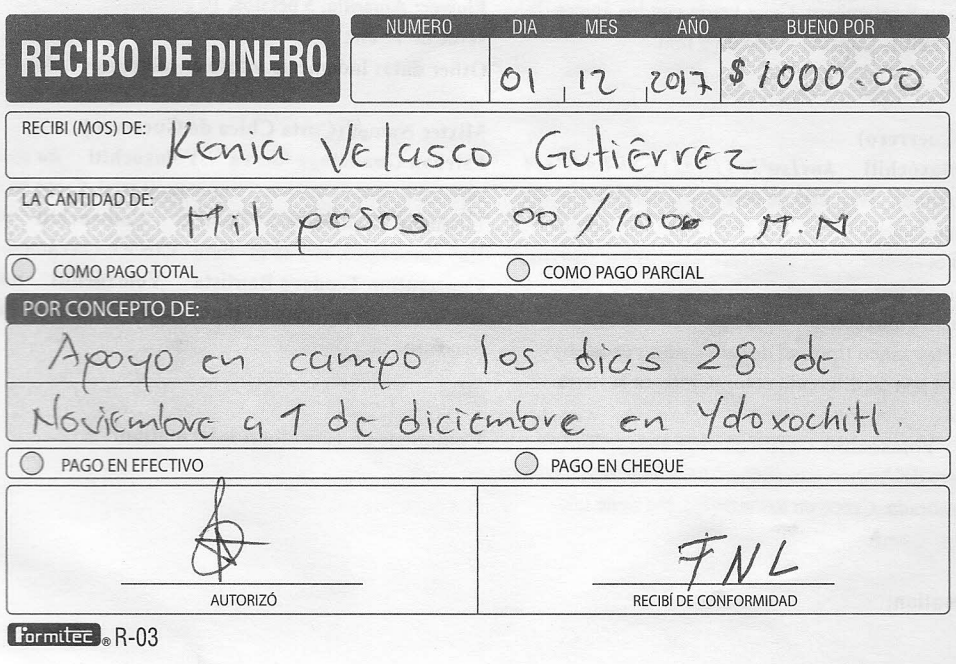 RECIBO DE DINERO
NUMERO DIA MES AÑO BUENO POR
01 12 2017 $1000.00
RECIBI (MOS) DE: Kenia Velasco Gutiérrez
LA CANTIDAD DE: Mil pesos 00/1000 M.N
COMO PAGO TOTAL COMO PAGO PARCIAL
POR CONCEPTO DE:
Apoyo en campo los dias 28 de
Noviembre a 1 de diciembre en Ydoxochitl.
PAGO EN EFECTIVO PAGO EN CHEQUE
FNL
AUTORIZÓ RECIBÍ DE CONFORMIDAD
Formitec ® R-03